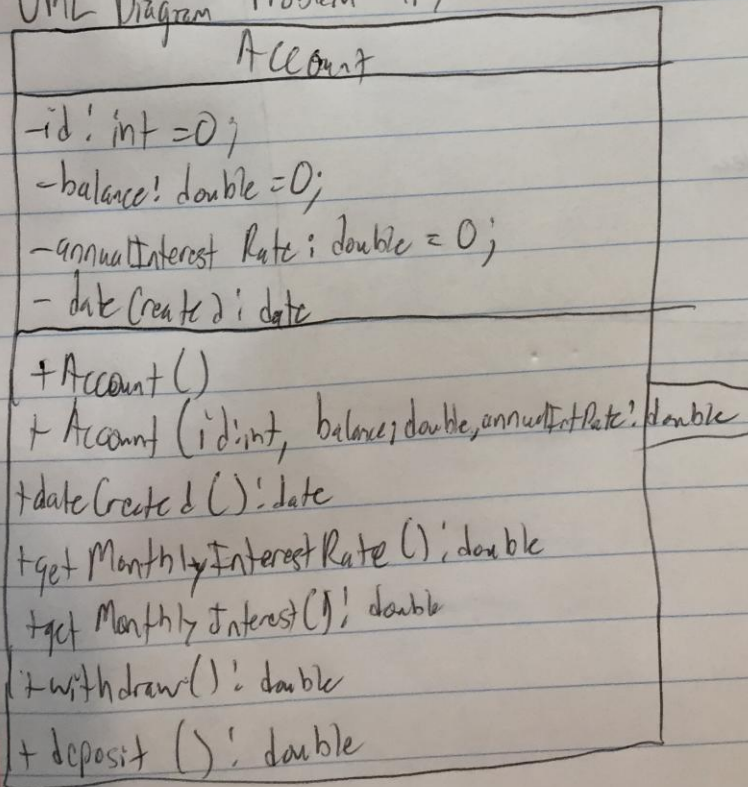 UML Diagram Problem
Account
-id: int = 0;
-balance: double = 0;
-annualInterest Rate: double = 0;
- dateCreated: date
+Account()
+ Account (id:int, balance: double, annualIntRate: double
+dateCreated(): date
+get MonthlyInterestRate(): double
+get Monthly Interest(): double
+withdraw(): double
+ deposit (): double